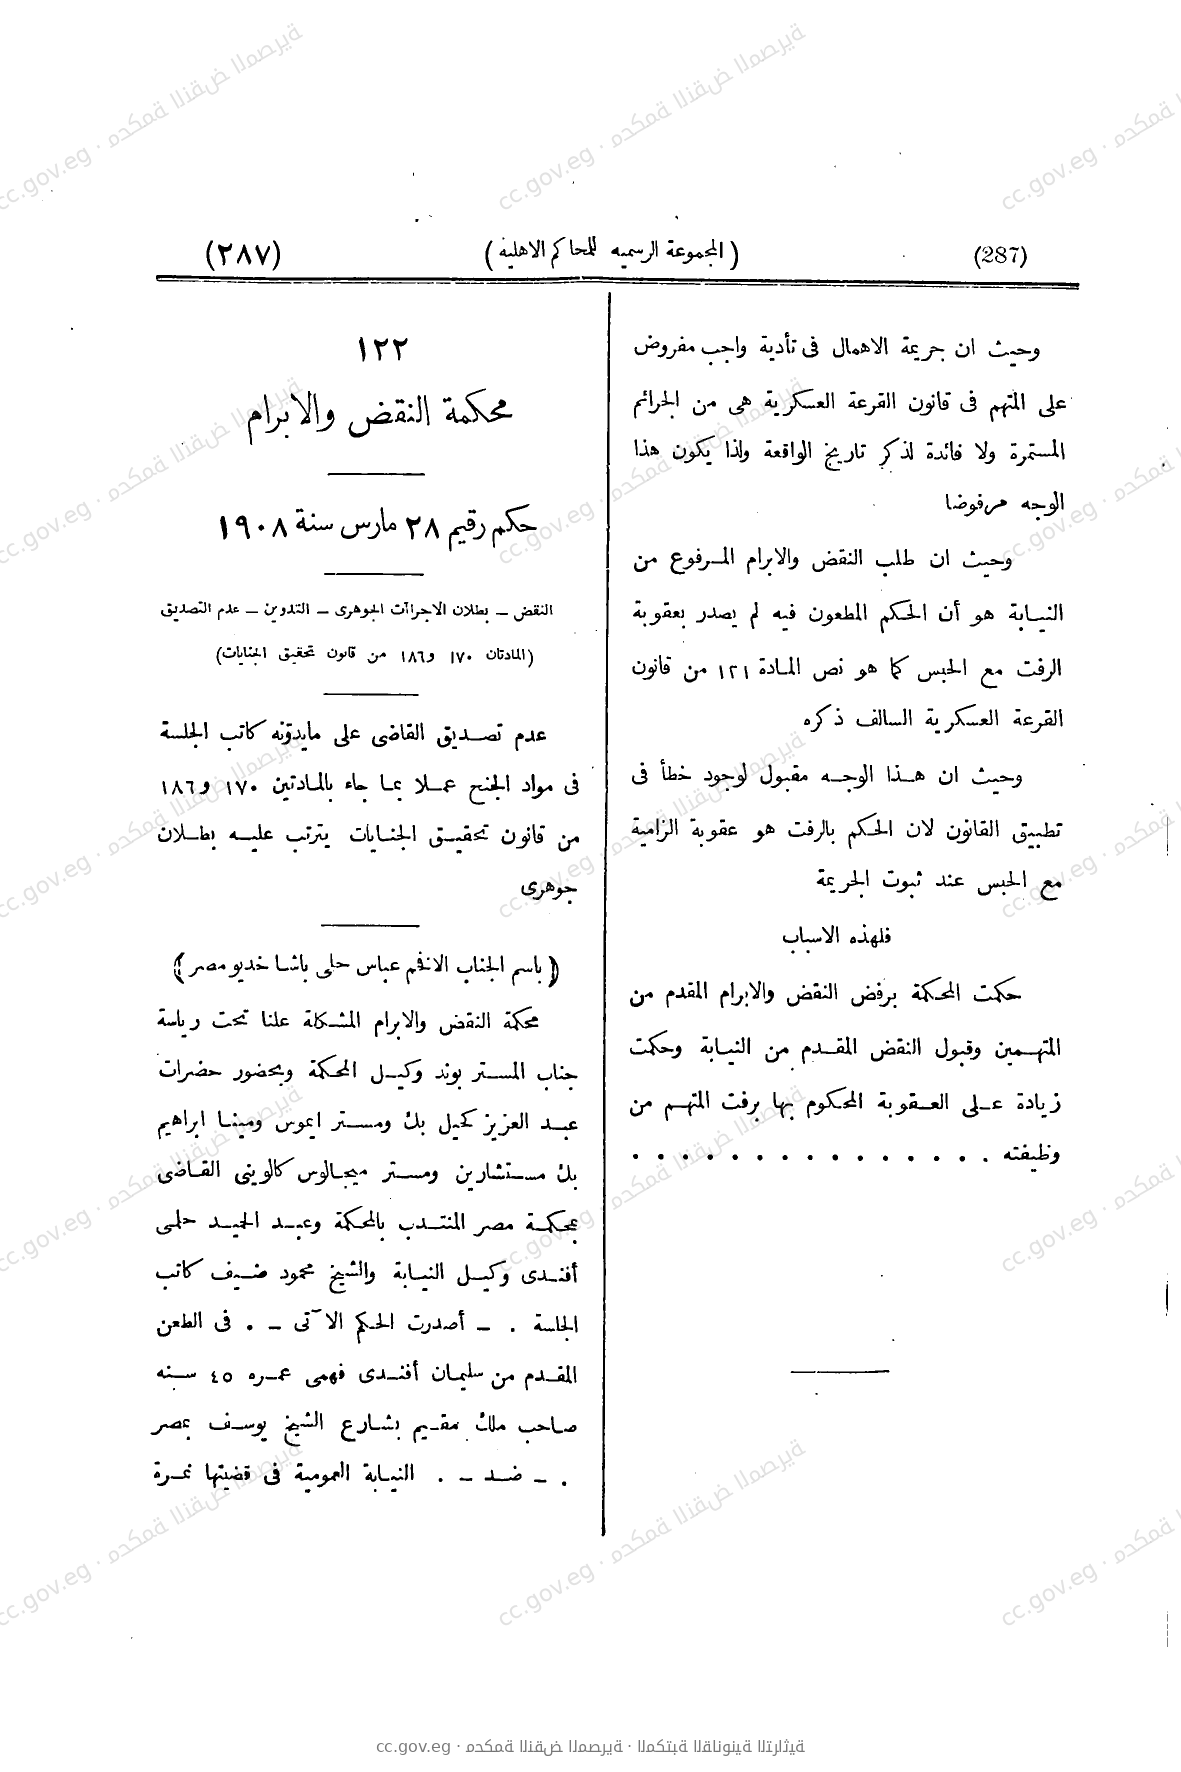 (287)
( المجموعة الرسميه للمحاكم الاهلية )
(٢٨٧)
وحيث ان جريمة الاهمال فى تأدية واجب مفروض
على المتهم فى قانون القرعة العسكرية هى من الجرائم
المستمرة ولا فائدة لذكر تاريخ الواقعة ولذا يكون هذا
الوجه مرفوضا
وحيث ان طلب النقض والابرام المرفوع من
النيابة هو أن الحكم المطعون فيه لم يصدر بعقوبة
الرفت مع الحبس كما هو نص المادة ١٢١ من قانون
القرعة العسكرية السالف ذكره
وحيث ان هذا الوجه مقبول لوجود خطأ فى
تطبيق القانون لان الحكم بالرفت هو عقوبة الزامية
مع الحبس عند ثبوت الجريمة
فلهذه الاسباب
حكمت المحكمة برفض النقض والابرام المقدم من
المتهمين وقبول النقض المقدم من النيابة وحكمت
زيادة على العقوبة المحكوم بها برفت المتهم من
وظيفته . . . . . . . . . . . . . . .
١٢٢
محكمة النقض والابرام
حكم رقيم ٢٨ مارس سنة ١٩٠٨
النقض – بطلان الاجراآت الجوهرى – التدوين – عدم التصديق
(المادتان ١٧٠ و١٨٦ من قانون تحقيق الجنايات)
عدم تصديق القاضى على مايدوّنه كاتب الجلسة
فى مواد الجنح عملا بما جاء بالمادتين ١٧٠ و١٨٦
من قانون تحقيق الجنايات يترتب عليه بطلان
جوهرى
(( باسم الجناب الافخم عباس حلمى باشا خديو مصر ))
محكمة النقض والابرام المشكلة علنا تحت رياسة
جناب المستر بوند وكيل المحكمة وبحضور حضرات
عبد العزيز كحيل بك ومستر ايموس ومينا ابراهيم
بك مستشارين ومستر ميجالوس كالوينى القاضى
بمحكمة مصر المنتدب بالمحكمة وعبد الحميد حلمى
أفندى وكيل النيابة والشيخ محمود ضيف كاتب
الجلسة . – أصدرت الحكم الآتى – . فى الطعن
المقدم من سليمان أفندى فهمى عمره ٤٥ سنه
صاحب ملك مقيم بشارع الشيخ يوسف بمصر
. – ضد – . النيابة العمومية فى قضيتها نمرة
cc.gov.eg · محكمة النقض المصرية · المكتبة القانونية التراثية